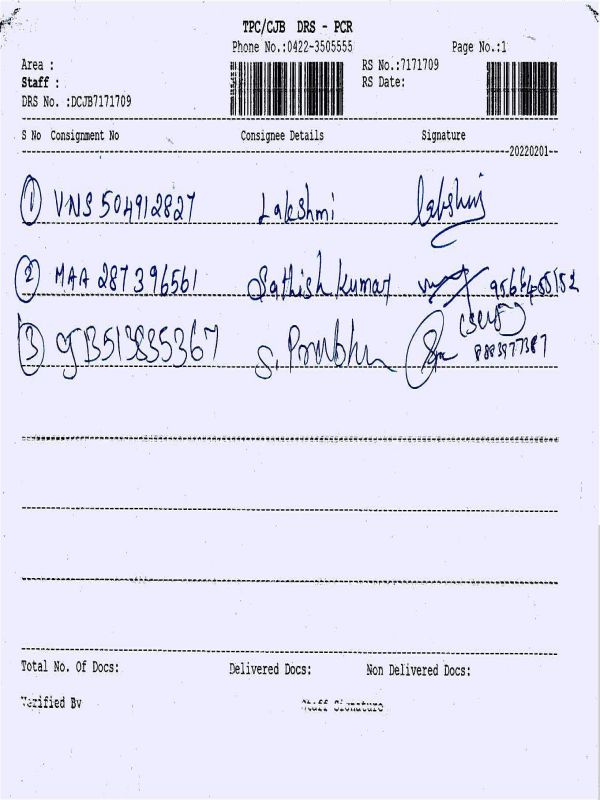 TPC/CJB DRS - PCR
Phone No.:0422-3505555 Page No.:1
Area : RS No.:7171709
Staff : RS Date:
DRS No. :DCJB7171709
S No Consignment No Consignee Details Signature
20220201
1 VNS 504912827 Lakshmi Lakshmi
2 MAA 287396561 Sathish Kumar
(Self)
3 CJB513835367 S. Prabhu
Total No. Of Docs: Delivered Docs: Non Delivered Docs:
Verified By Staff Signature